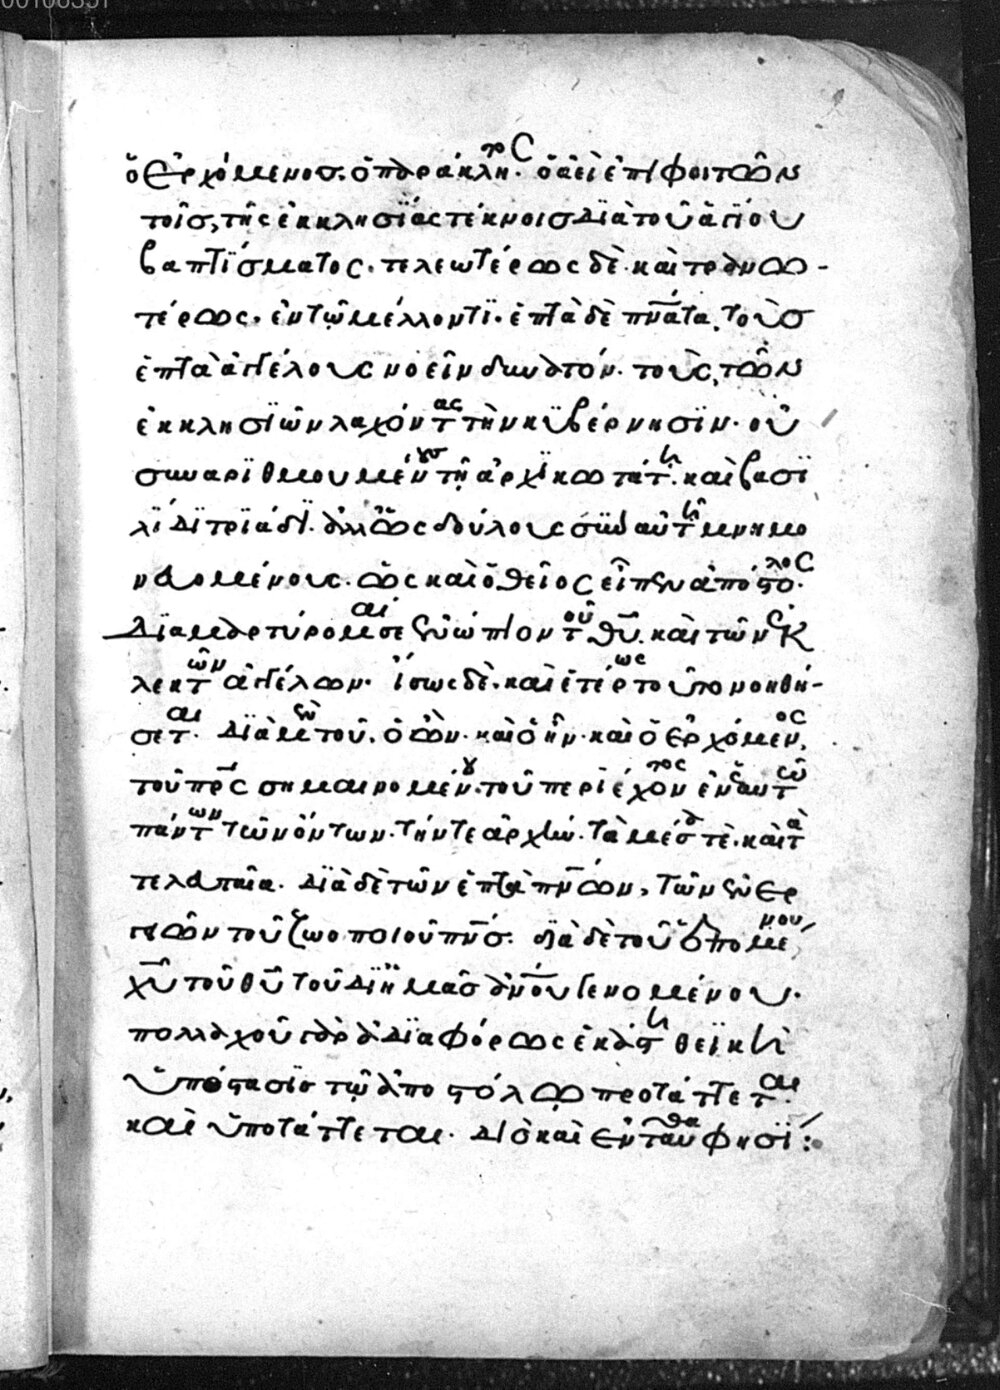 ὁ ἐρχόμενοσ. ὁ παράκλητος. ὁ ἀεὶ ἐπιφοιτῶν
τοῖσ, τῆς ἐκκλησϊάς τέκνοισ δϊὰ τοῦ ἁγίου
βαπτϊσματος. τελεωτέρως δὲ καὶ τρανω-
τέρως. ἐν τῷ μέλλοντϊ. ἑπτὰ δὲ πν̅ατα, τοὺσ
ἑπτὰ ἀγγέλους νοεῖν δυνατόν. τοὺς, τῶν
ἐκκλησϊῶν λαχόντας τὴν κϋβέρνησϊν. οὐ
συναρϊθμουμένουσ τῇ ἀρχϊκωτάτῃ. καὶ βασϊ
λΐδϊ τρϊάδϊ. ἀλλ ὡς δούλους σὺν αὐτῇ μνημο
νευομένους. ὡς καὶ ὁ θεῖος εἶπεν ἀπόστολος.
Δϊαμαρτύρομαι σε ἐνώπιον τοῦ θῦ. καὶ τῶν ἐκ
λεκτῶν ἀγγέλων. ἴσως δὲ. καὶ ἑτέρως τοῦτο νοηθή-
σεται. δϊὰ μὲν τοῦ. ὁ ὢν. καὶ ὁ ἦν. καὶ ὁ ἐρχόμενος,
τοῦ πρ̅ς σημαινομένου. τοῦ περιέχοντος ἐν ἑαυτῶ
πάντων τῶν ὄντων. τήν τε ἀρχὴν. τὰ μέσα τὲ. καὶ τὰ
τελευταῖα. δϊὰ δὲ τῶν ἑπτὰ πν̅ων, τῶν ἐνερ
γειῶν τοῦ ζωοποιοῦ πν̅σ. δϊὰ δὲ τοῦ ἑπομένου,
χ̅υ τοῦ θ̅υ τοῦ δϊ ἡμᾶσ ἀν̅ου γενομένου.
πολλαχοῦ γὰρ ἀδϊαφόρως ἑκάστη θεϊκὴ
ὑπόστασϊσ τῷ ἀποστόλῳ προτάττεται.
καὶ ὑποτάττεται. διὸ καὶ ἐνταῦθα φησϊ: